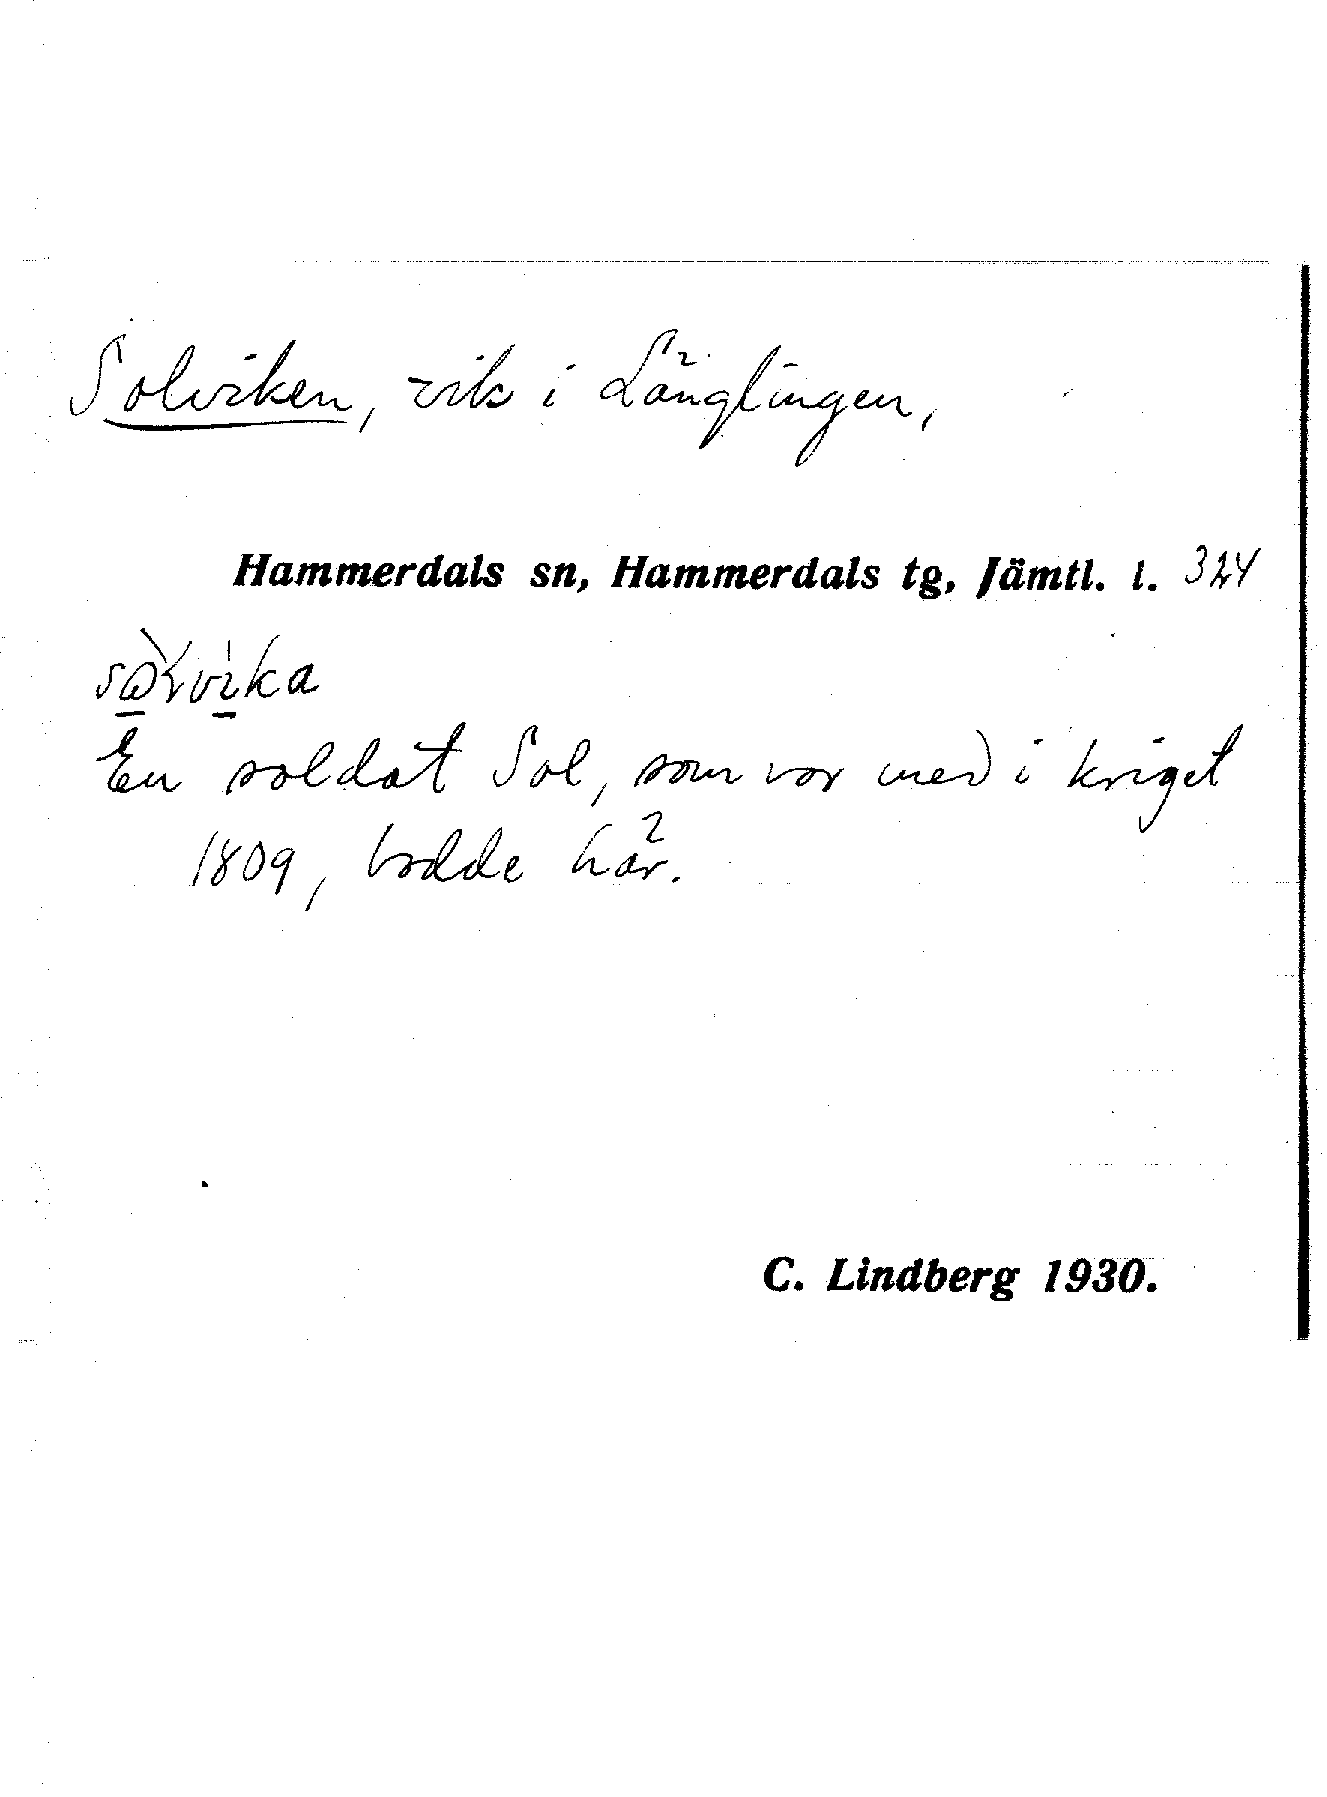 Solviken, vik i Länglingen,
Hammerdals sn, Hammerdals tg, Jämtl. l. 324
En soldat Sol, som var med i kriget
1809, bodde här.
C. Lindberg 1930.